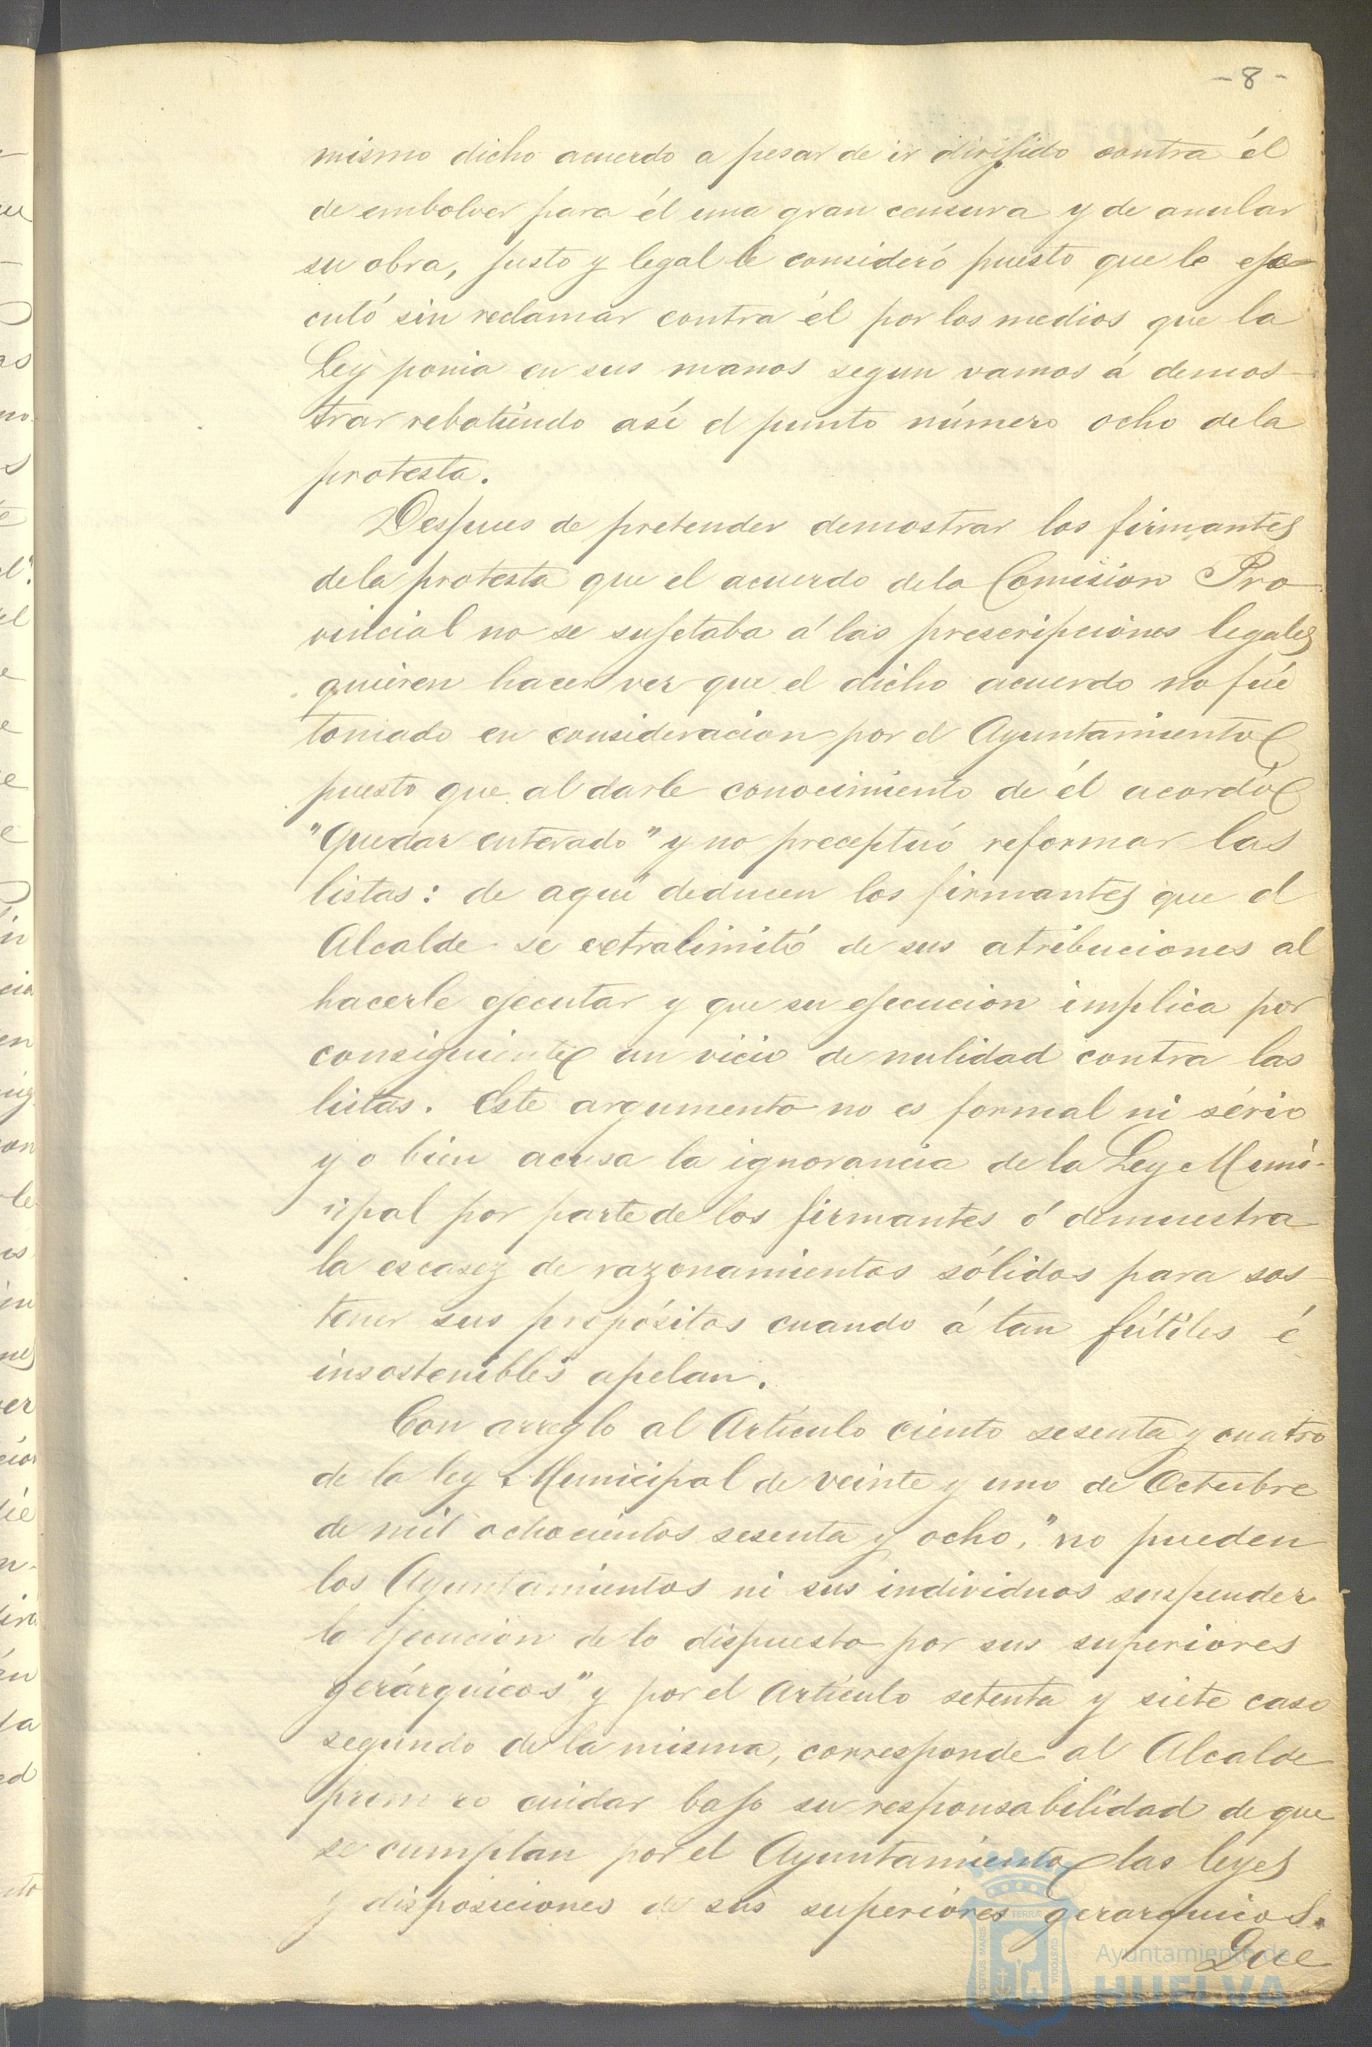 - 8 -
mismo dicho acuerdo a pesar de ir dirijido contra él
de embolver para él una gran censura y de anular
su obra, justo y legal le consideró puesto que lo eje
cutó sin reclamar contra él por los medios que la
Ley ponia en sus manos segun vamos á demos-
trar rebatiendo asi el punto número ocho de la
protesta.
Despues de pretender demostrar los firmantes
de la protesta que el acuerdo de la Comision Pro
vincial no se sujetaba á las prescripciones legales
quieren hacer ver que el dicho acuerdo no fué
tomado en consideracion por el Ayuntamiento
puesto que al darle conocimiento de él acordó
"Quedar enterado" y no preceptuó reformar las
listas: de aqui deducen los firmantes que el
Alcalde se extralimitó de sus atribuciones al
hacerle ejecutar y que su ejecucion implica por
consiguiente un vicio de nulidad contra las
listas. Este argumento no es formal ni sério
y o bien acusa la ignorancia de la Ley Muni-
cipal por parte de los firmantes ó demuestra
la escasez de razonamientos sólidos para sos-
tener sus propósitos cuando á tan fútiles é
insostenibles apelan.
Con arreglo al Artículo ciento sesenta y cuatro
de la ley Municipal de veinte y uno de Octubre
de mil ochocientos sesenta y ocho, "no pueden
los Ayuntamientos ni sus individuos suspender
la ejecucion de lo dispuesto por sus superiores
gerárquicos" y por el Artículo setenta y siete caso
segundo de la misma, corresponde al Alcalde
primero cuidar bajo su responsabilidad de que
se cumplan por el Ayuntamiento las leyes
y disposiciones de sus superiores gerarquicos.
Que
Ayuntamiento de
HUELVA